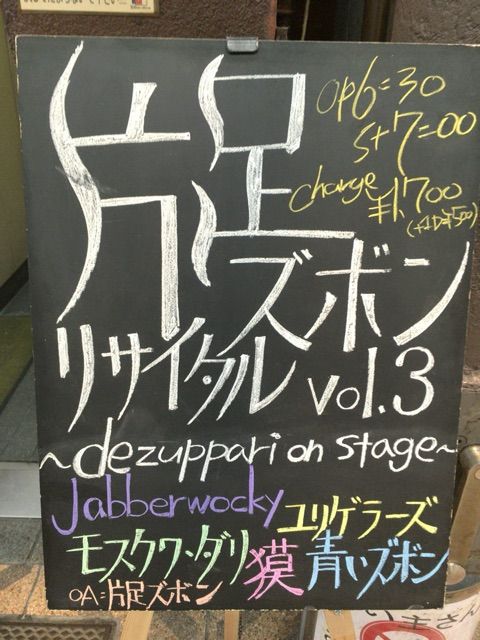 片足
ズボン
リサイクル vol.3
~dezuppari on stage~
op6=30
st7=00
charge ¥1,700
(+1D¥500)
Jabberwocky ユリゲラーズ
モスクワ・ダリ 獏 青いズボン
OA=片足ズボン